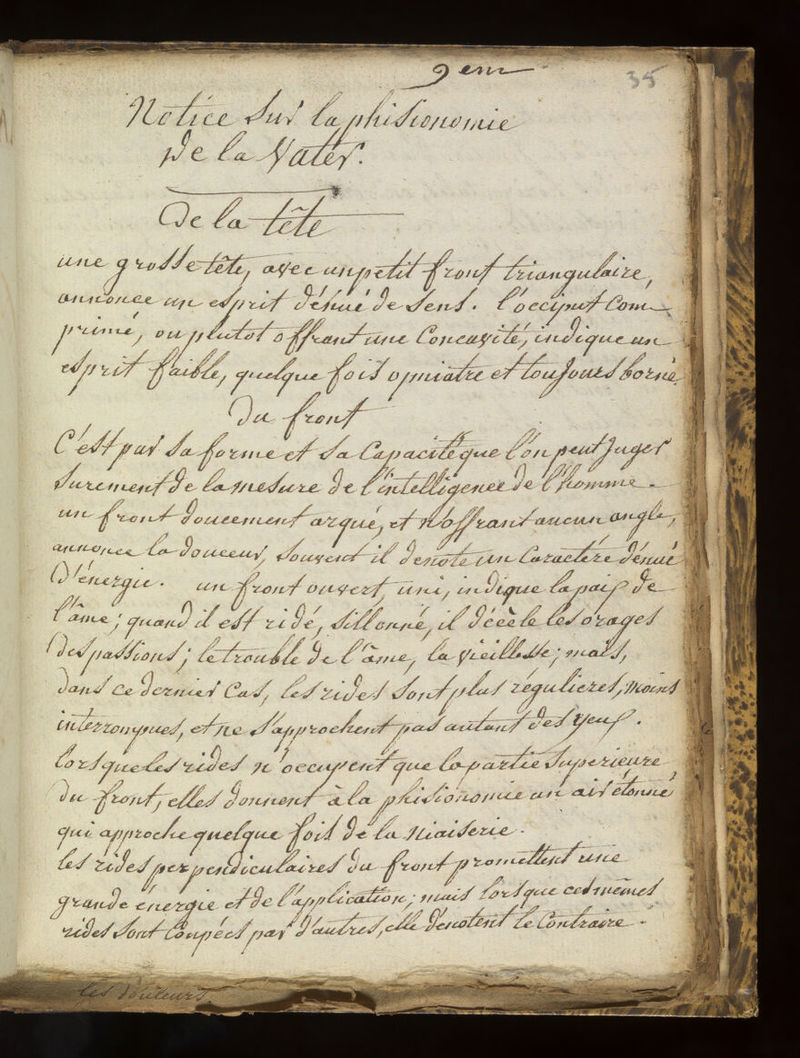 9em
35
Notice sur la phisionomie
De la Vater.
De la tête
une grosse tête, avec un petit front triangulaire,
annonce un esprit dénué de sens. l'occiput com-
primé, ou plutot offrant une Concavité, indique un
esprit faible, quelque fois opiniatre et toujours borné.
du front
C'est par sa forme et sa Capacité que l'on peut juger
surement de la mesure de l'intelligence de l'homme.
un front doucement arqué, et n'offrant aucun angle,
annonce la douceur, souvent il denote un Caractére dénué
d'énergie. un front ouvert, uni, indique la paix de
l'âme; quand il est ridé, sillonné, il décèle les orages
des passions; le trouble de l'âme, la vieillesse; mais,
dans ce dernier Cas, les rides sont plus régulieres, moins
interrompues, et ne s'approchent pas autant des yeux.
lorsque les rides n'occupent que la partie superieure
du front, elles donnent à la phisionomie un air étonné
qui approche quelque fois de la niaiserie.
les rides perpendiculaires du front promettent une
grande énergie et de l'application; mais lorsque ces mêmes
rides sont Coupées par d'autres, elle dénotent le Contraire.
les douleurs